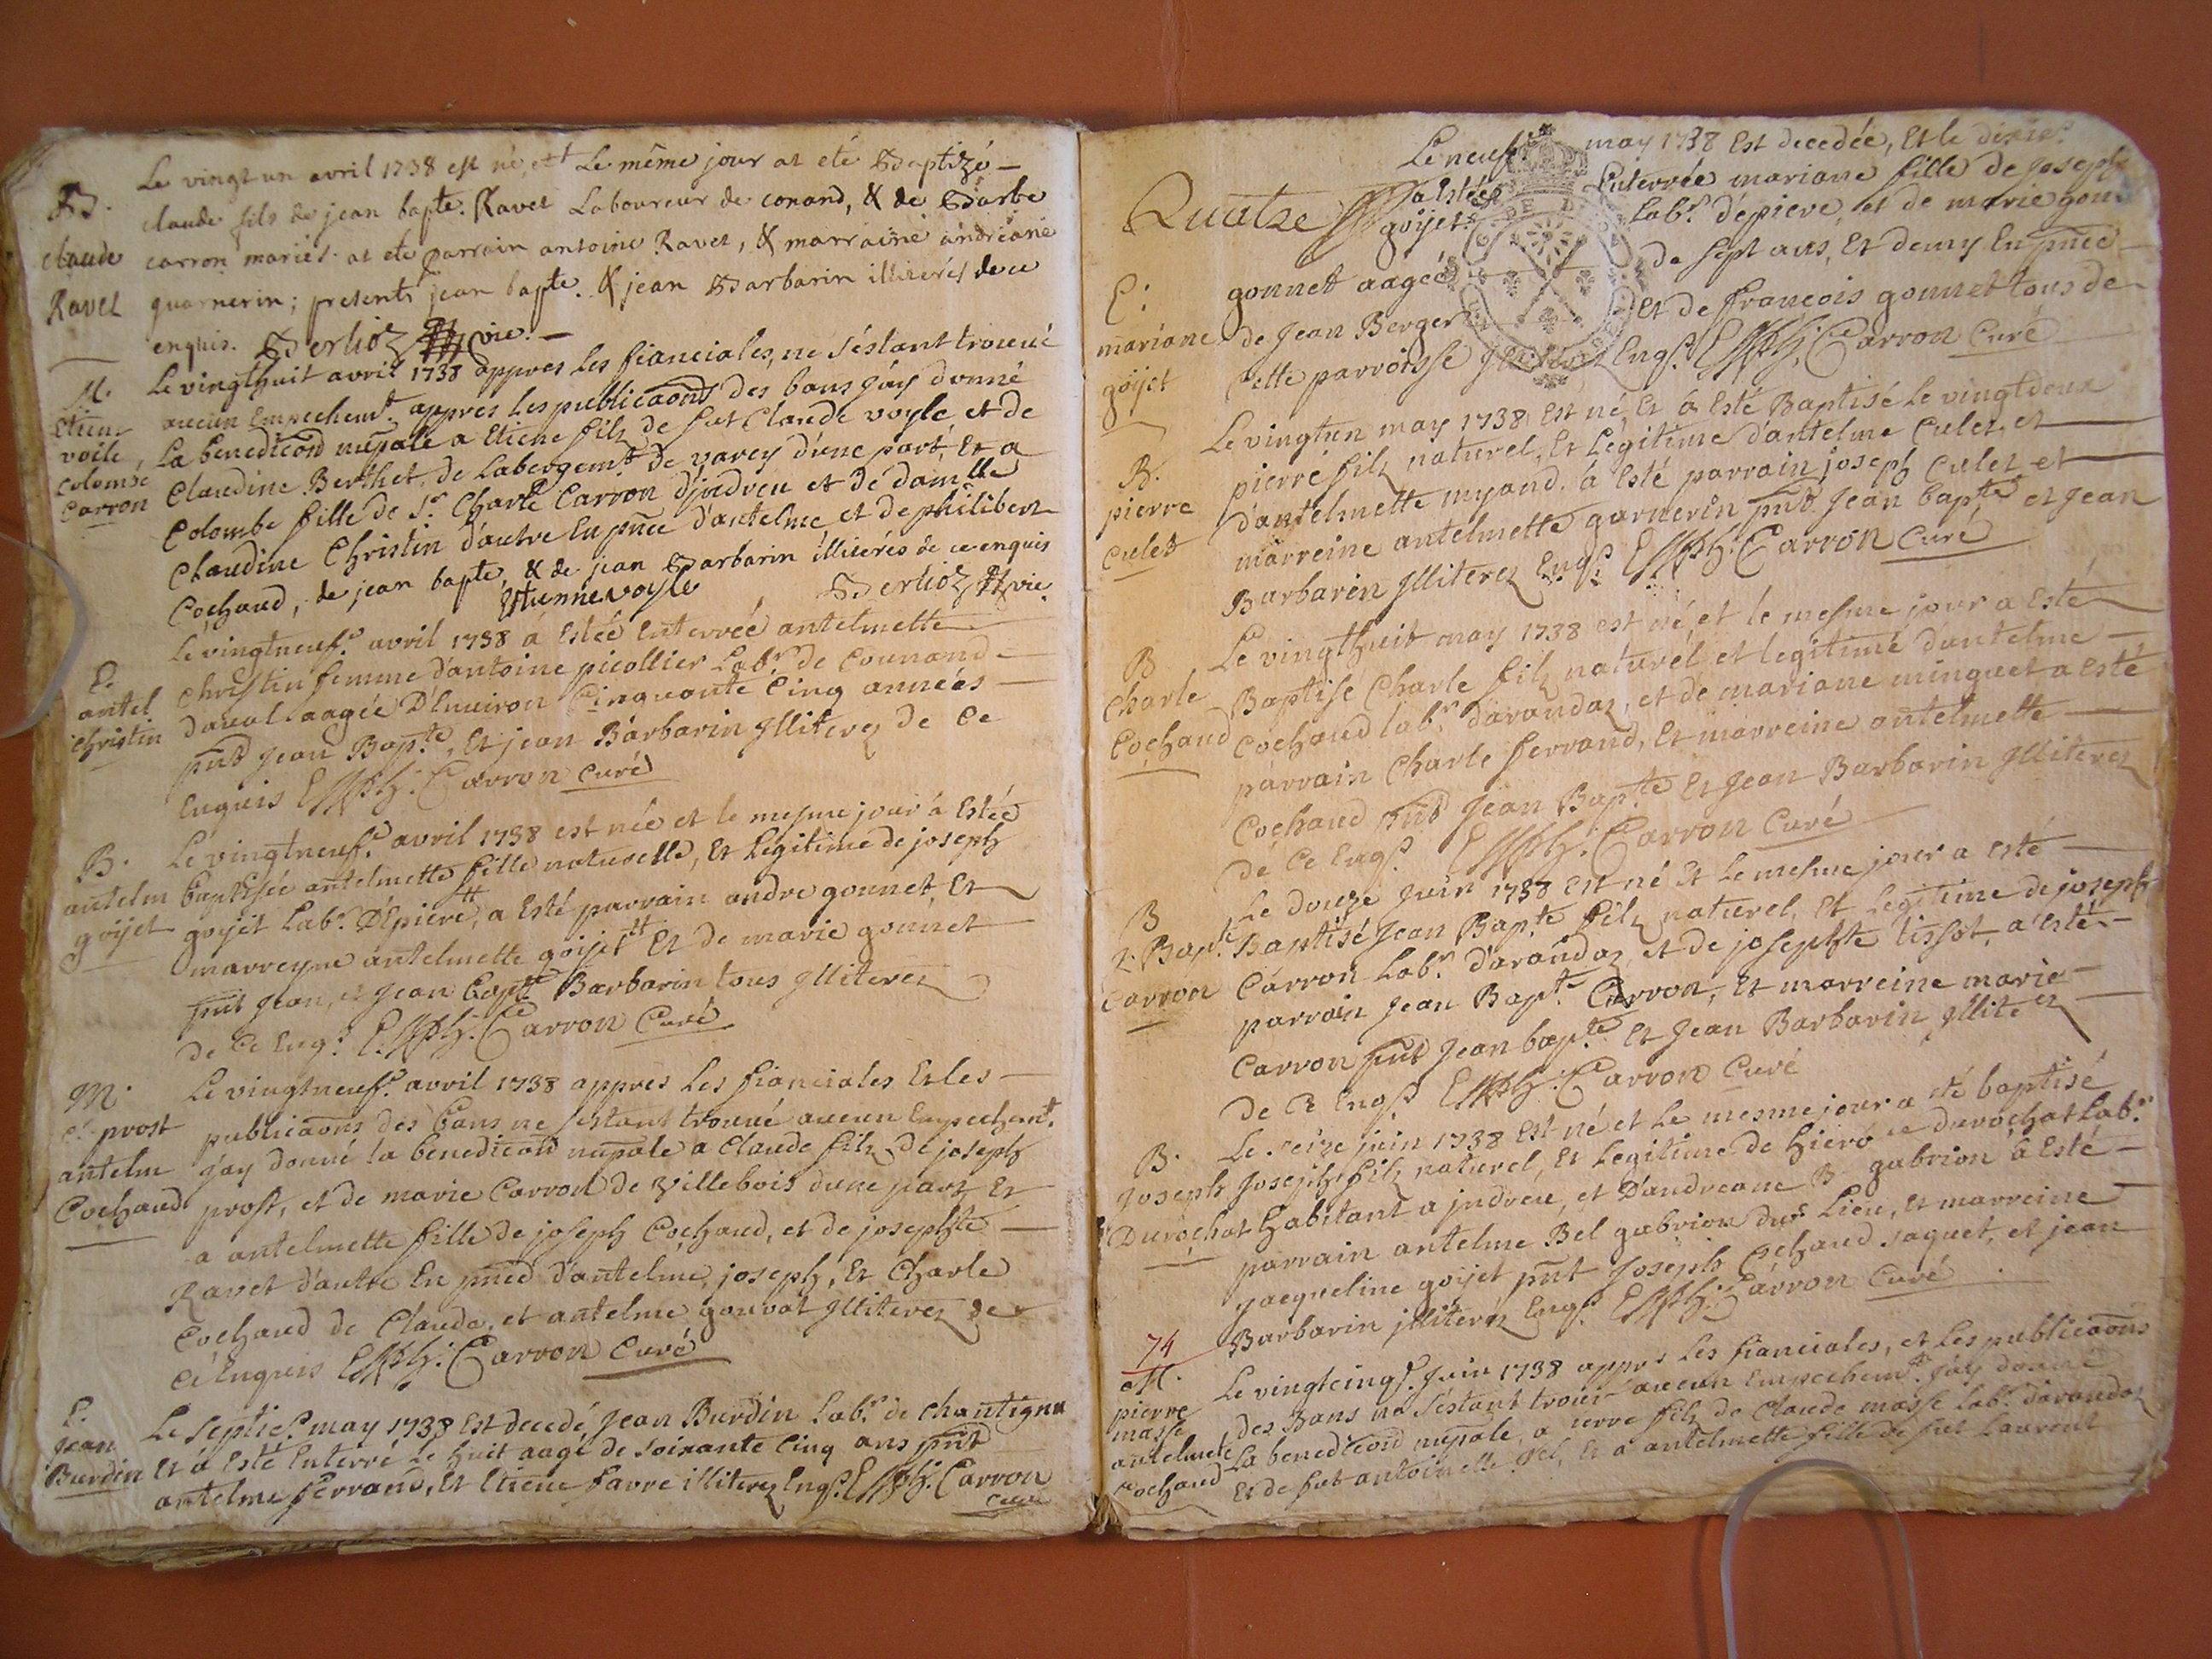 B.
claude
Ravet
Le vingt un avril 1738 est né, et Le même jour at eté Baptizé
claude fils de jean bapte. Ravet Laboureur de conand, & de Barbe
carron mariés. at eté parrain antoine Ravet, & marraine andréane
guarnerin; presents jean bapte. & jean Barbarin illiterés de ce
enquis. Berlioz vic.
M.
Etien
voile,
colombe
carron
Le vingthuit avril 1738 appres les fianciales, ne s'éstant trouué
aucun Empechemt. appres les publicaons des bans j'ay donné
La benediçon nupale a Etiene filz de fut Claude voyle et de
Claudine Berthet, de Labergemt. de varey d'une part, Et a
Colombe fille de Sr. Charle Carron d'jndreu et de damlle
Claudine Christin d'autre En pnce d'antelme et de philibert
Cochaud, de jean bapte, & de jean Barbarin illiterés de ce enquis
Ettienne voyle Berlioz vic.
E.
antel
christin
Le vingtneuf.e avril 1738 á Estéé Enterréé antelmette
christin femme d'antoine picollier Labr. de Counand
daual aagée D'Enuiron Cinquante Cinq annéés
pnt Jean Bapte, Et jean Barbarin Jlliterez de Ce
Enquis Carron curé
B.
antelm
goijet
Le vingtneuf.e avril 1738 est néé et le mesme jour á Estéé
baptiséé antelmette fille naturelle, Et Legitime de joseph
goijet Labr. D'Epiere, a Esté parrain andre gonnet, Et
marreyne antelmette goijet Et de marie gonnet
pnt Jean, et Jean bapte Barbarin tous Jlliterez
de Ce Enqs. Carron Curé
M.
Cl prost
antelm
Cochaud
Le vingtneuf.e avril 1738 appres Les fianciales Et les
publicaons des bans ne s'estant trouué aucun Empechemt.
j'ay donné la benediçon nupale a Claude filz de joseph
prost, et de marie Carron de Villebois dune part Et
a antelmette fille de joseph Cochaud, et de josephte
Ravet d'autre En pnce d'antelme, joseph, Et Charle
Cochaud de Claude, et antelme gouvat Jlliterez de
Cé Enquis Carron Curé
E.
Jean
Burdin
Le septie.e may 1738 Est decedé, Jean Burdin Labr. de Chantignu
Et á Esté Enterré Le huit aagé de soixante Cinq ans pnt
antelme ferrand, Et Etiene favre illiterez Enqs. Carron
curé
Quatre
E.
mariane
goijet
Le neuf.e may 1738 Est decedée, Et le dixie.e
a Estéé Enterrée mariane fille de joseph
goijet Labr. d'epiere, et de marie gon
gonnet aagéé de sept ans, Et demy En pnce
de Jean Berger Et de francois gonnet tous de
Cette parroisse Enqs. Carron Curé
B.
pierre
culet
Le vingtun may 1738 Est né, Et á Esté Baptisé Le vingtdeux
pierre filz naturel, Et Legitime d'antelme Culet et
d'antelmette myand. á Esté parrain joseph Culet et
marreine antelmette garnerin pnt Jean bapte et Jean
Barbarin Jlliterez Enqs. Carron Curé
B
Charle
Cochaud
Le vingthuit may 1738 est né, et le mesme jour a Esté
Baptisé Charle filz naturel et legitime d'antelme
Cochaud labr. d'arandaz, et de mariane minguet a Esté
parrain Charle ferrand, Et marreine antelmette
Cochaud pnt Jean Bapte Et Jean Barbarin Jlliterez
de Ce Enqs. Carron Curé
B
J. Bapte
Carron
Le douze Juin 1738 Est né Et Le mesme jour a Esté
Baptisé Jean Bapte filz naturel, Et Legitime de joseph
Carron Labr. d'arandaz et de josephte tissot, a Esté
parrain Jean Bapte Carron, Et marreine marie
Carron pnt Jean bapte Et Jean Barbarin Jlliterez
de Ce Enqs. Carron Curé
B.
Joseph
Durochat
Le seize juin 1738 Est né et Le mesme jour a eté baptisé
Joseph filz naturel, Et Legitime de hieró durochat Labr.
habitant a jndreu, et D'andreane gabrion á Esté
parrain antelme Bel gabrion du Lieu, Et marreine
Jacqueline goijet pnt Joseph Cochaud jaquet, et jean
Barbarin jlliterez Enqs. Carron Curé
74
M.
pierre
masse
antelmete
Cochaud
Le vingtcinq.e Juin 1738 appres Les fianciales, et Les publicaons
des Bans ne s'éstant trouué aucun Empechemt. j'ay donné
La benediçon nupale, a pierre filz de Claude masse Labr. darandaz
Et de fut antoinette Bel, Et á antelmette fille de fut Laurent